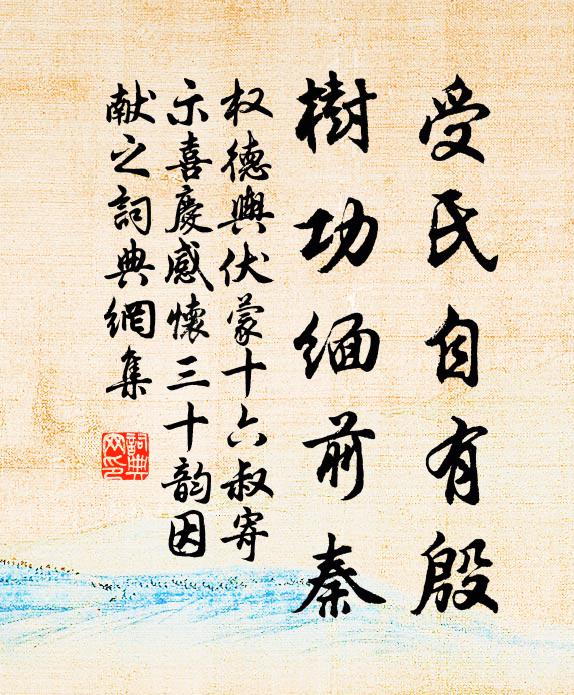 受氏自有殷
樹功缅前秦
权德輿伏蒙十六叔寄
示喜慶感懷三十韵因
献之詞典網集
詞典网印